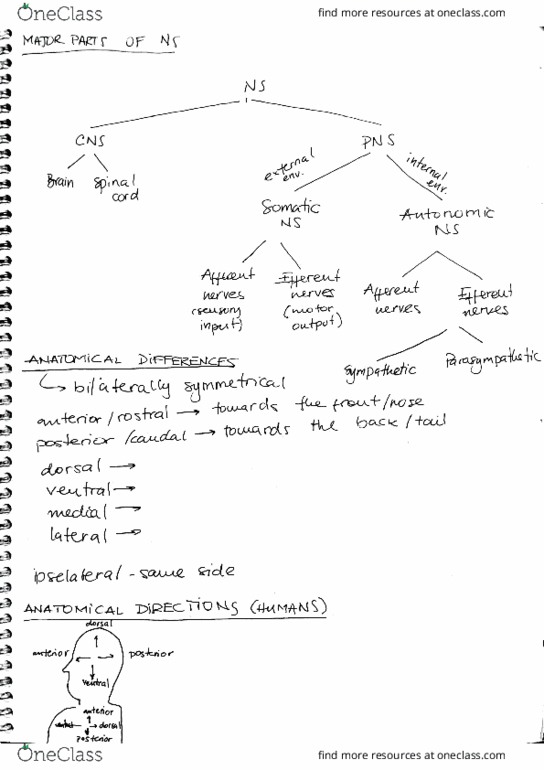 OneClass
find more resources at oneclass.com
MAJOR PARTS OF NS
NS
CNS
PNS
Brain
Spinal cord
external env.
internal env.
Somatic NS
Autonomic NS
Afferent nerves (sensory input)
Efferent nerves (motor output)
Afferent nerves
Efferent nerves
Sympathetic
Parasympathetic
ANATOMICAL DIFFERENCES
↳ bilaterally symmetrical
anterior/rostral → towards the front/nose
posterior/caudal → towards the back/tail
dorsal →
ventral →
medial →
lateral →
ipselateral - same side
ANATOMICAL DIRECTIONS (HUMANS)
dorsal
anterior
posterior
ventral
anterior
dorsal
posterior
OneClass
find more resources at oneclass.com